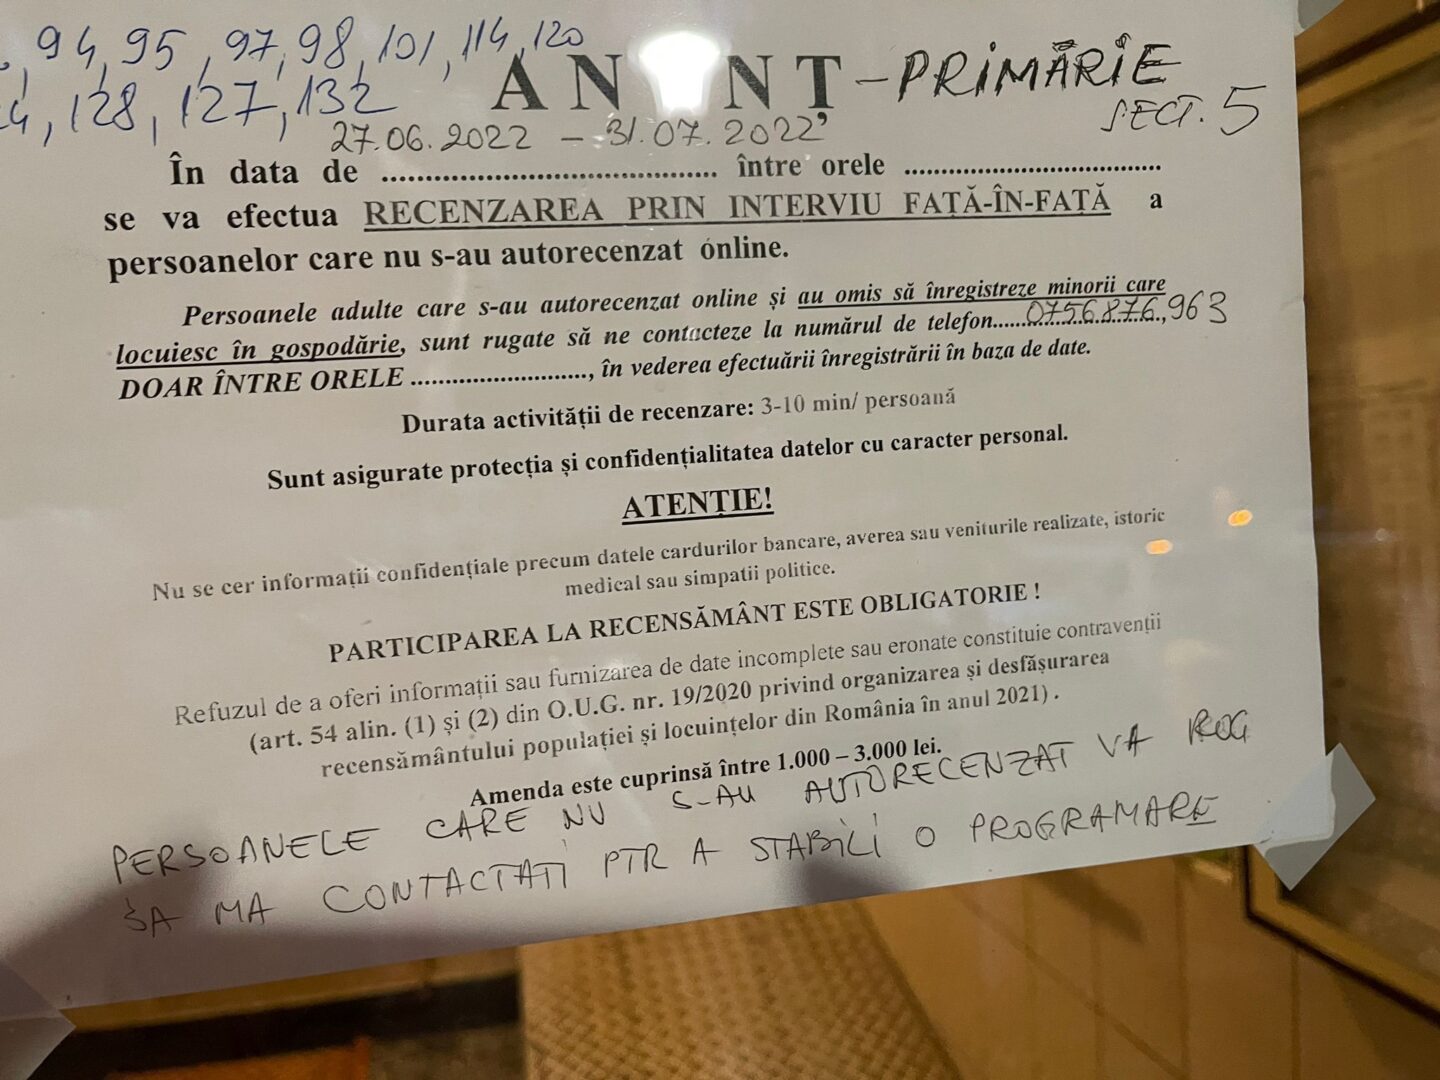 94, 95, 97, 98, 101, 114, 120
4, 128, 127, 132
ANUNȚ - PRIMĂRIE
SECT. 5
27.06.2022 - 31.07.2022
În data de ........................................ între orele ..................................
se va efectua RECENZAREA PRIN INTERVIU FAȚĂ-ÎN-FAȚĂ a
persoanelor care nu s-au autorecenzat online.
Persoanele adulte care s-au autorecenzat online și au omis să înregistreze minorii care
locuiesc în gospodărie, sunt rugate să ne contacteze la numărul de telefon......0756.876.,963
DOAR ÎNTRE ORELE .........................., în vederea efectuării înregistrării în baza de date.
Durata activității de recenzare: 3-10 min/ persoană
Sunt asigurate protecția și confidențialitatea datelor cu caracter personal.
ATENȚIE!
Nu se cer informații confidențiale precum datele cardurilor bancare, averea sau veniturile realizate, istoric
medical sau simpatii politice.
PARTICIPAREA LA RECENSĂMÂNT ESTE OBLIGATORIE !
Refuzul de a oferi informații sau furnizarea de date incomplete sau eronate constituie contravenții
(art. 54 alin. (1) și (2) din O.U.G. nr. 19/2020 privind organizarea și desfășurarea
recensământului populației și locuințelor din România în anul 2021) .
Amenda este cuprinsă între 1.000 – 3.000 lei.
PERSOANELE CARE NU S-AU AUTORECENZAT VA ROG
SA MA CONTACTATI PTR A STABILI O PROGRAMARE